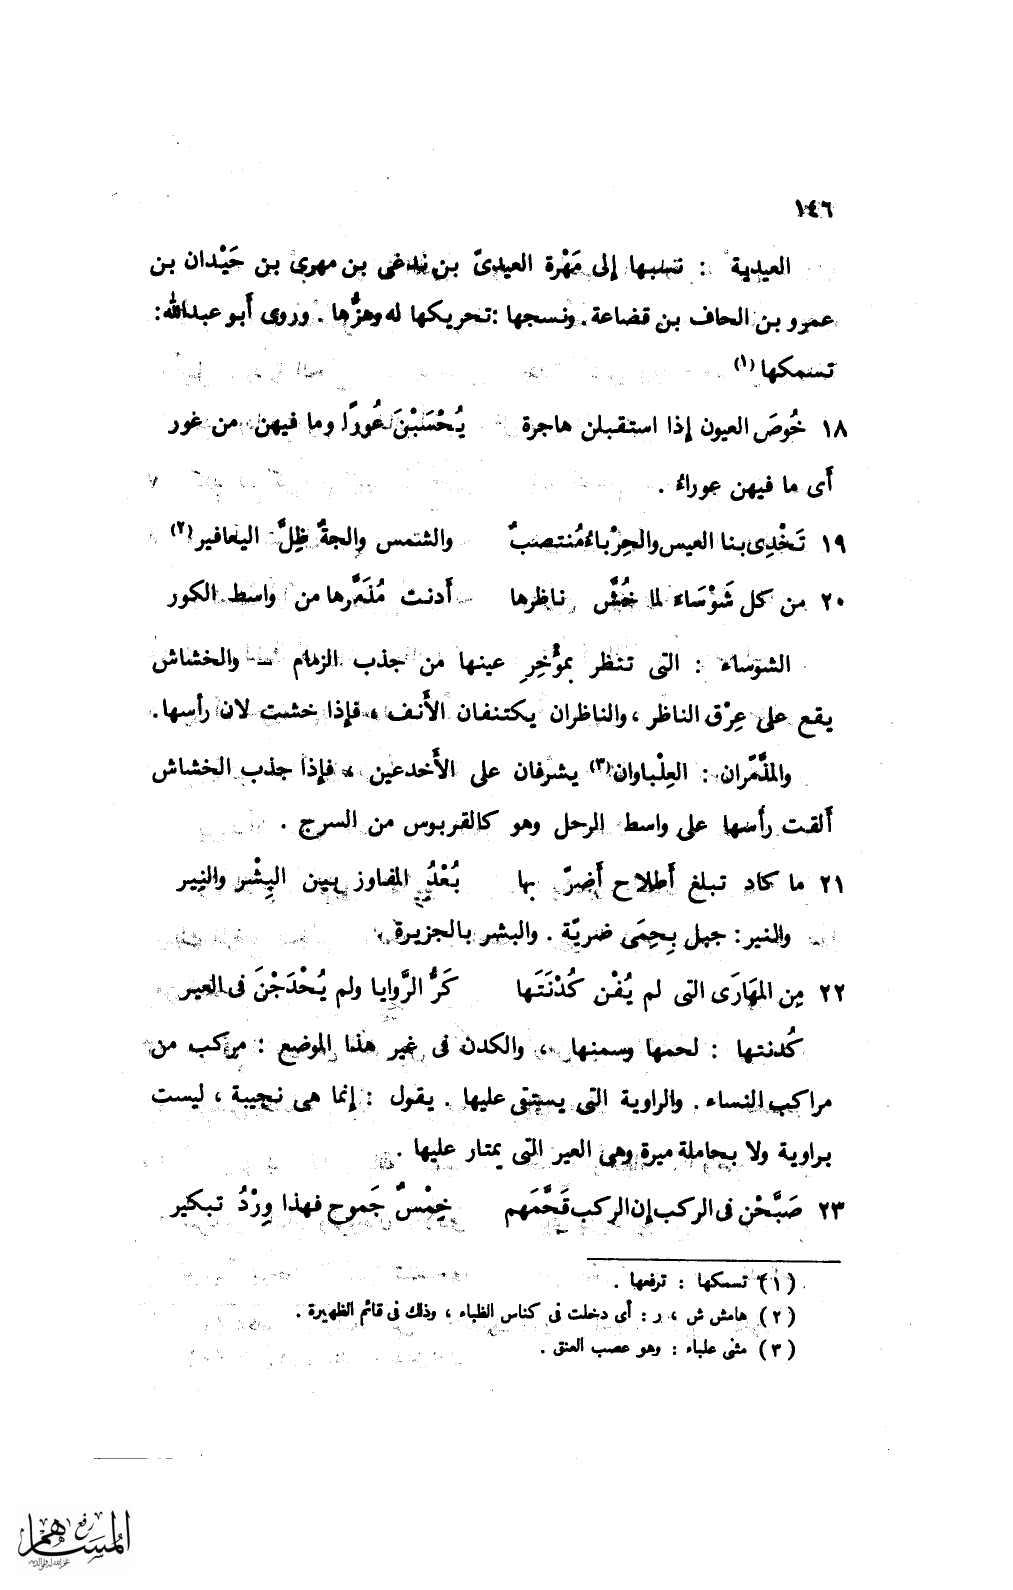 ١٤٦
العيدية : نسبها إلى مَهْرة العيدىّ بن ندغى بن مهرى بن حَيْدان بن
عمرو بن الحاف بن قضاعة. ونسجها : تحريكها له وهزُّها . وروى أبو عبدالله :
تسمكها (١)
١٨ خُوصَ العيون إذا استقبلن هاجرة يُحْسَبْنَ عُورًا وما فيهن من عور
أى ما فيهن عوراء .
١٩ تَخْدِى بنا العيس والحِرْباءُ مُنتصبٌ والشمس والجةٌ ظِلَّ اليعافير (٢)
٢٠ من كل شَوْسَاء لما خُشَّ ناظرها أدنت مُذَمَّرها من واسط الكور
الشوساء : التى تنظر بمؤْخِرِ عينها من جذب الزمام — والخشاش
يقع على عِرْق الناظر ، والناظران يكتنفان الأَنف ، فإذا خشت لان رأسها.
والمذَّمّران : العِلْباوان (٣) يشرفان على الأَخدعين ، فإذا جذب الخشاش
أَلقت رأْسها على واسط الرحل وهو كالقربوس من السرج .
٢١ ما كاد تبلغ أَطلاح أَضرّ بها بُعْدُ المفاوز بين البِشْر والنِير
والنير : جبل بِحِمَى ضريّة . والبشر بالجزيرة .
٢٢ مِن المهَارَى التى لم يُفْن كُدْنَتَها كَرُّ الرَّوايا ولم يُحْدَجْنَ فى العير
كُدنتها : لحمها وسمنها ، والكدن فى غير هذا الموضع : مركب من
مراكب النساء . والراوية التى يستقى عليها . يقول : إنما هى نجيبة ، ليست
براوية ولا بحاملة ميرة وهى العير التى يمتار عليها .
٢٣ صَبَّحْن فى الركب إن الركب قَحَّمَهم خِمْسٌ جَموح فهذا وِرْدُ تبكير
(١) تسمكها : ترفعها .
(٢) هامش ش ، ر : أى دخلت فى كناس الظباء ، وذلك فى قائم الظهيرة .
(٣) مثنى علباء : وهو عصب العنق .